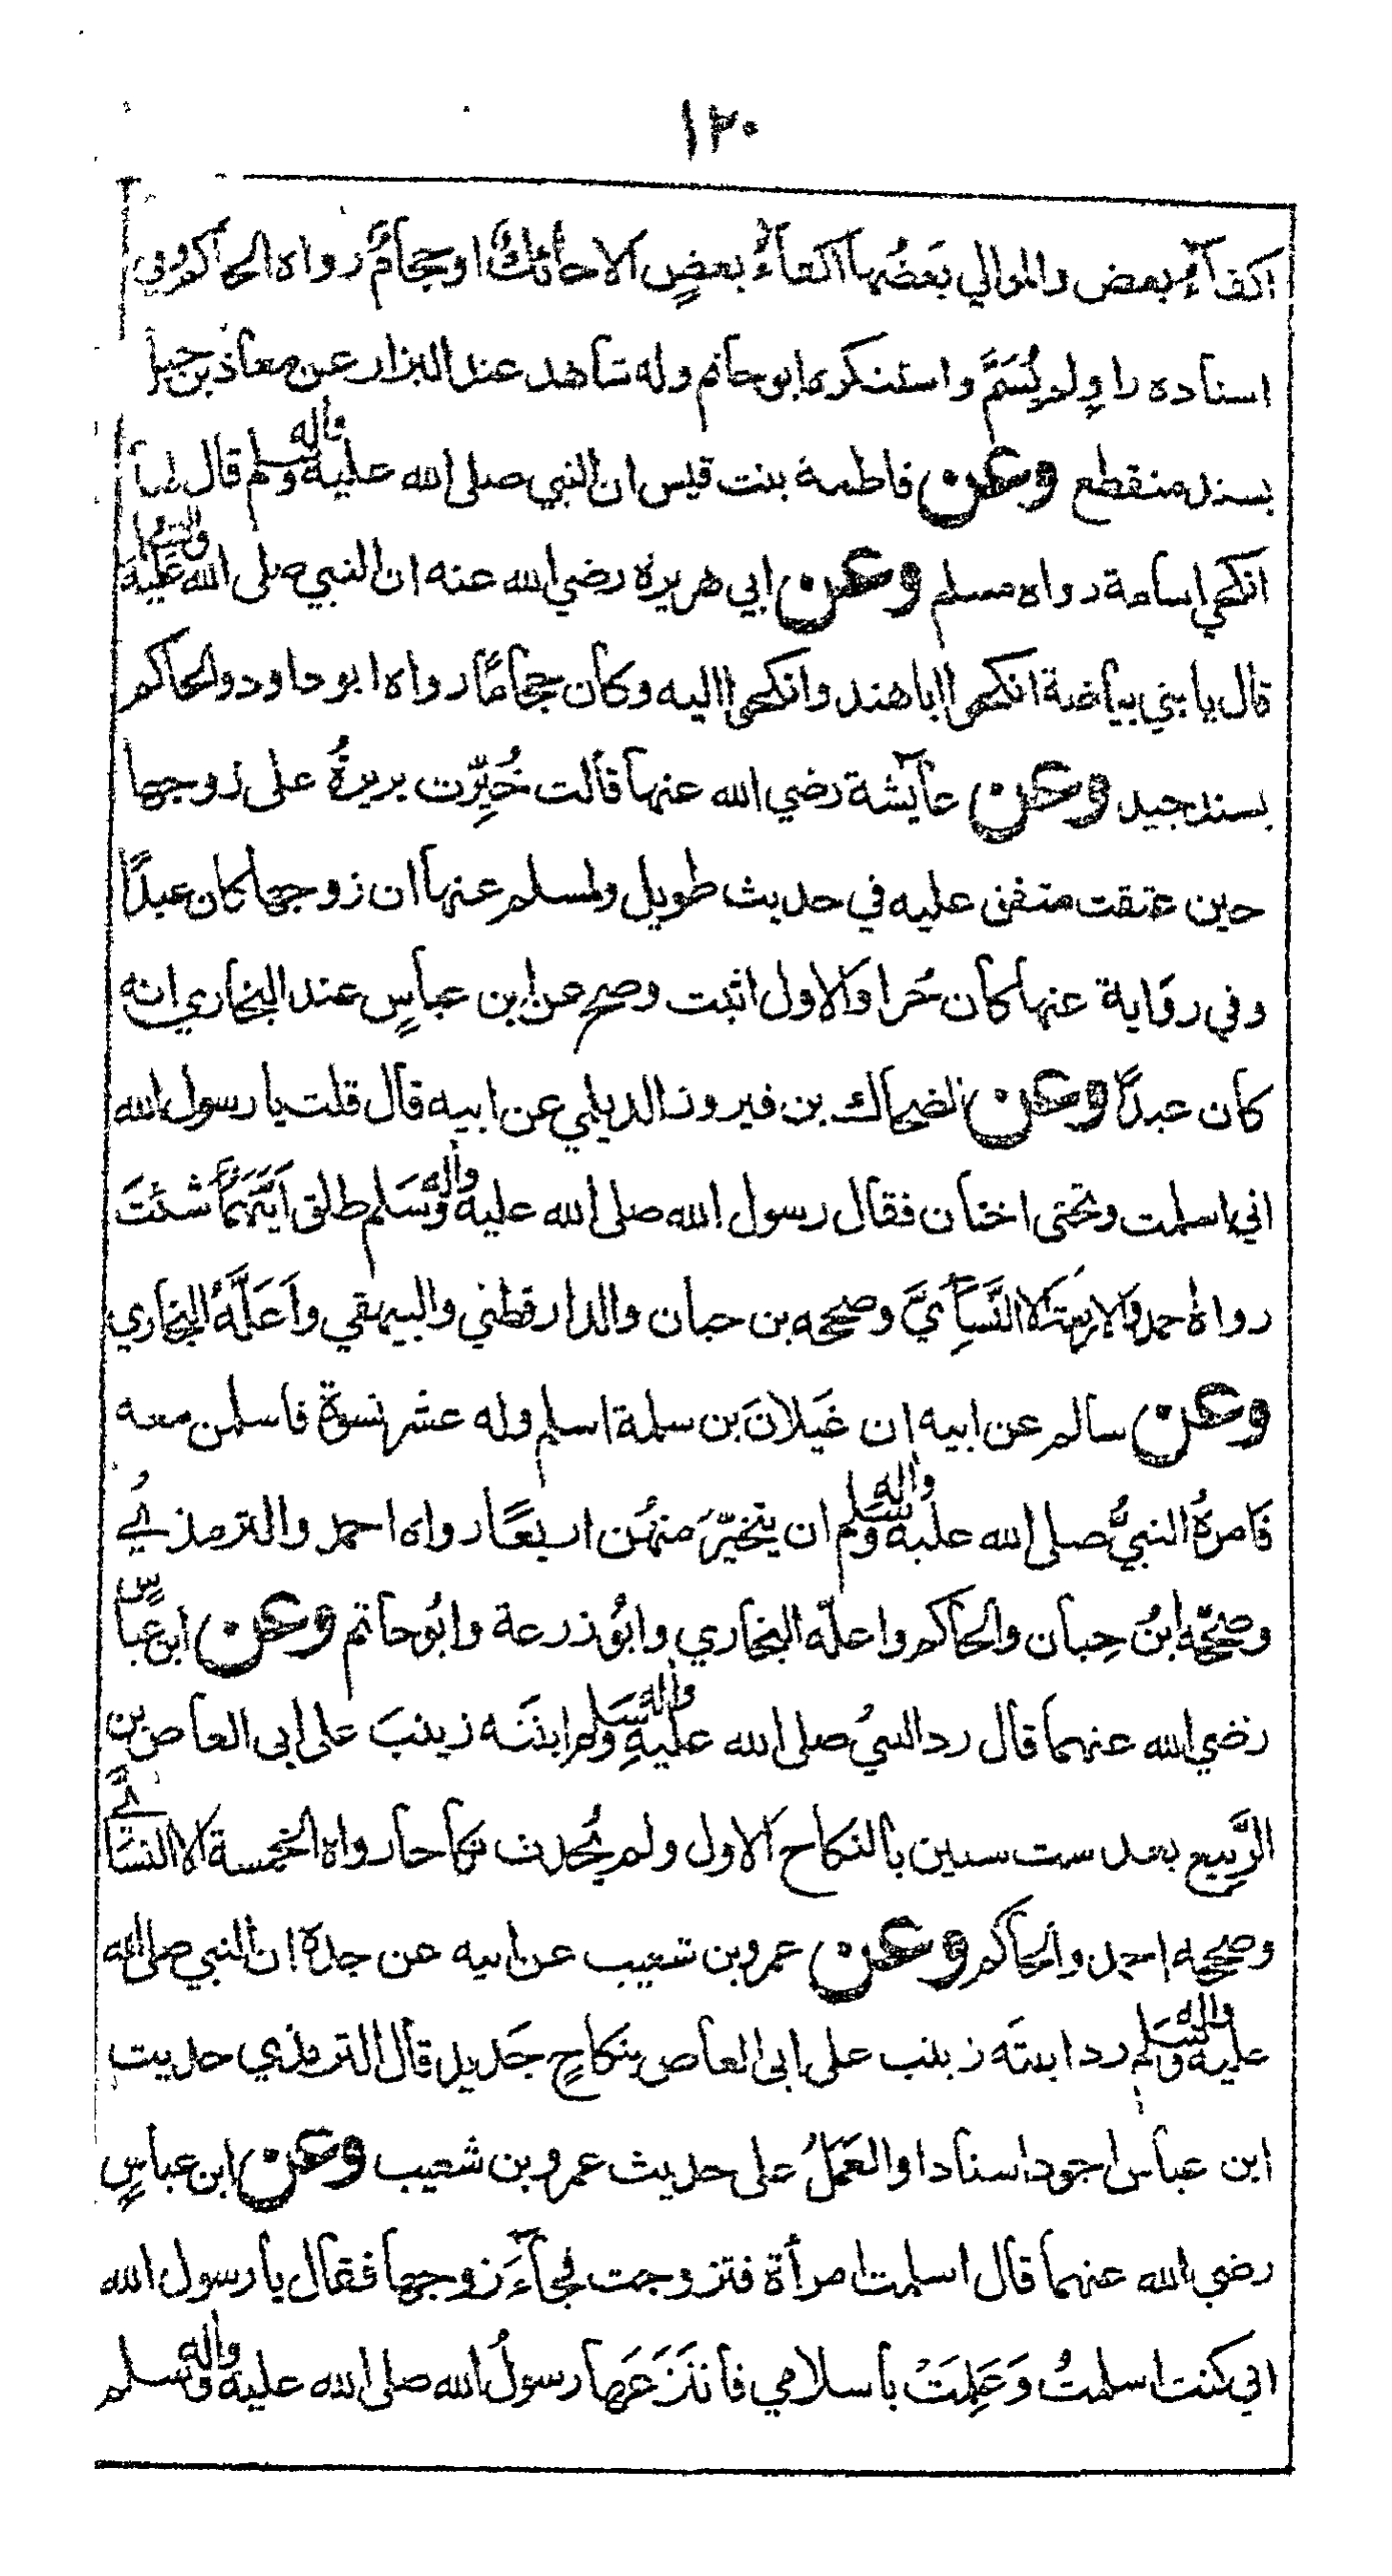 ١٢٠
اكفآءُ بعض والموالي بَعضُها اكفاءُ بعضٍ الا حائكٌ اوحجامٌ رواه الحاكم وفي
اسناده راوٍ لم يُسَمَّ واستنكره ابو حاتم وله شاهد عند البزار عن معاذ بن جبل
بسند منقطع وعن فاطمة بنت قيس ان النبي صلى الله عليه وآله وسلم قال لها
انكحي اسامة رواه مسلم وعن ابي هريرة رضي الله عنه ان النبي صلى الله عليه وآله وسلم
قال يا بني بياضة انكحوا ابا هند وانكحوا اليه وكان حجامًا رواه ابو داود والحاكم
بسند جيد وعن عآئشة رضي الله عنها قالت خُيِّرت بريرةُ على زوجها
حين عتقت متفق عليه في حديث طويل ولمسلم عنها ان زوجها كان عبدًا
وفي رواية عنها كان حُرا والاول اثبت وصح عن ابن عباسٍ عند البخاري انه
كان عبدًا وعن الضحاك بن فيروز الديلمي عن ابيه قال قلت يا رسول الله
اني اسلمت وتحتى اختان فقال رسول الله صلى الله عليه وآله وَسَلم طلق اَيَّتَهُمَا شئتَ
رواه احمد والاربعة الا النَّسَآئِيَّ وصححه بن حبان والدارقطني والبيهقي واَعَلَّهُ البخاري
وعن سالم عن ابيه ان غَيلانَ بن سلمة اسلم وله عشر نسوة فاسلمن معه
فَامرهُ النبيُّ صلى الله عليه وآله وسلم ان يتخيَّرَ منهُن اربعًا رواه احمد والترمذيُّ
وصحّحه ابنُ حِبان والحاكم واعلّه البخاري وابُو زرعة وابُو حاتم وعن ابن عباسٍ
رضي الله عنهما قال رد النبيُ صلى الله عليهِ وآله وسلم ابنتَه زينبَ على ابى العاص بن
الرَّبيع بعد ست سنين بالنكاح الاول ولم يُحدث نكاحا رواه الخمسة الا النسَائيَّ
وصححه احمد والحاكم وعن عمرو بن شعيب عن ابيه عن جده ان النبي صلى الله
عليه وآله وسَلم رد ابنتَه زينب على ابى العاص بنكاحٍ جَديد قال الترمذي حديث
ابن عباس اجود اسنادا والعَمَلُ على حديث عمرو بن شعيب وعن ابن عباسٍ
رضي الله عنهما قال اسلمت امرأة فتزوجت فجآءَ زوجها فقال يا رسول الله
اني كنت اسلمتُ وَعَلِمَتْ باسلامي فانتَزَعَها رسولُ الله صلى الله عليه وآله وسلم